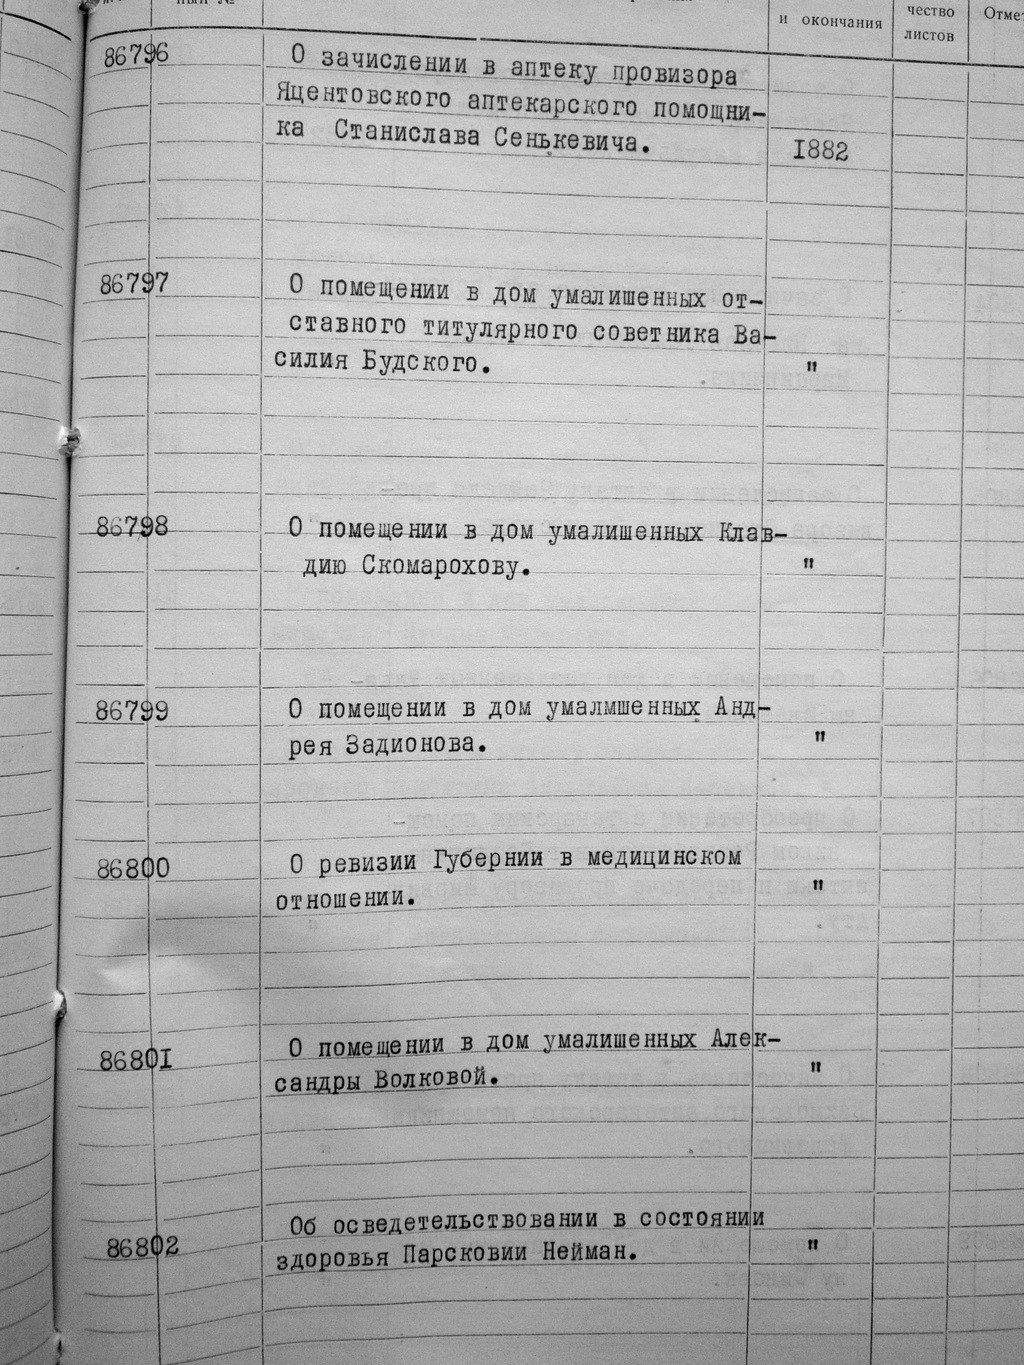 и окончания
чество
листов
86796
О зачислении в аптеку провизора
Яцентовского аптекарского помощни-
ка Станислава Сенькевича.
1882
86797
О помещении в дом умалишенных от-
ставного титулярного советника Ва-
силия Будского.
"
86798
О помещении в дом умалишенных Клав-
дию Скомарохову.
"
86799
О помещении в дом умалмшенных Анд-
рея Задионова.
"
86800
О ревизии Губернии в медицинском
отношении.
"
86801
О помещении в дом умалишенных Алек-
сандры Волковой.
"
86802
Об осведетельствовании в состоянии
здоровья Парсковии Нейман.
"